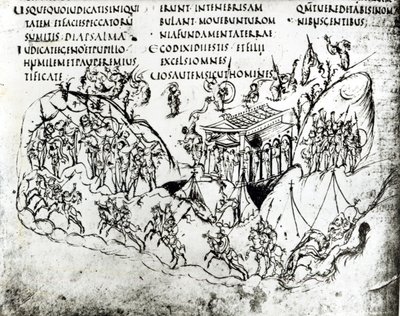 USQUEQUOIUDICATISINIQUI
TATEM ETFACIESPECCATORU
SUMITIS DIAPSALMA
IUDICATEEGENOETPUPILLO
HUMILEMETPAUPEREMIUS
TIFICATE
ERUNT INTENEBRISAM
BULANT MOUEBUNTUROM
NIAFUNDAMENTATERRAE
EGODIXIDIIESTIS ETFILII
EXCELSIOMNES
UOSAUTEMSICUTHOMINES
QMTUEREDITABISINOM
NIBUSGENTIBUS